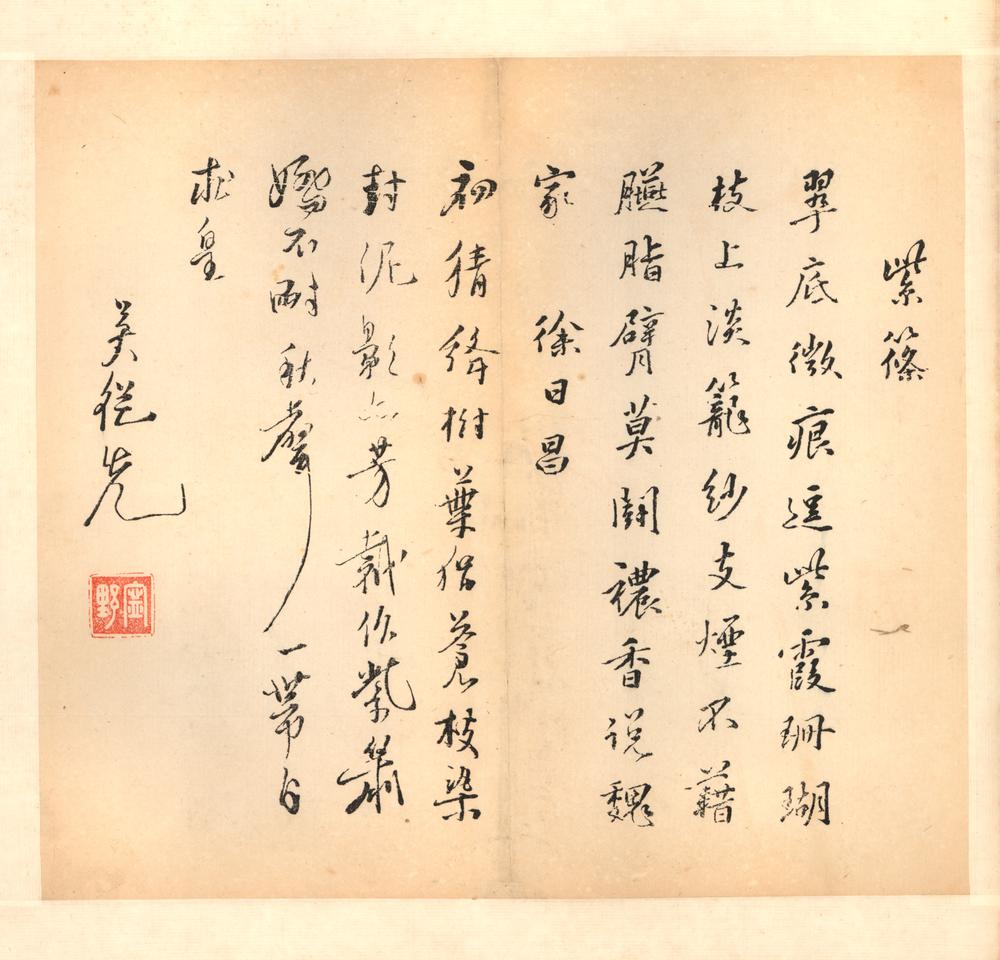 紫篠
翠底微痕逗紫霞珊瑚
枝上淡籠紗支煙不藉
臙脂臂莫鬭禯香说魏
家 徐日昌
初猜絳樹葉偕蒼枝染
封泥影芳裁作紫簫
不耐秋聲一帶白
皇
吴從先
寧野